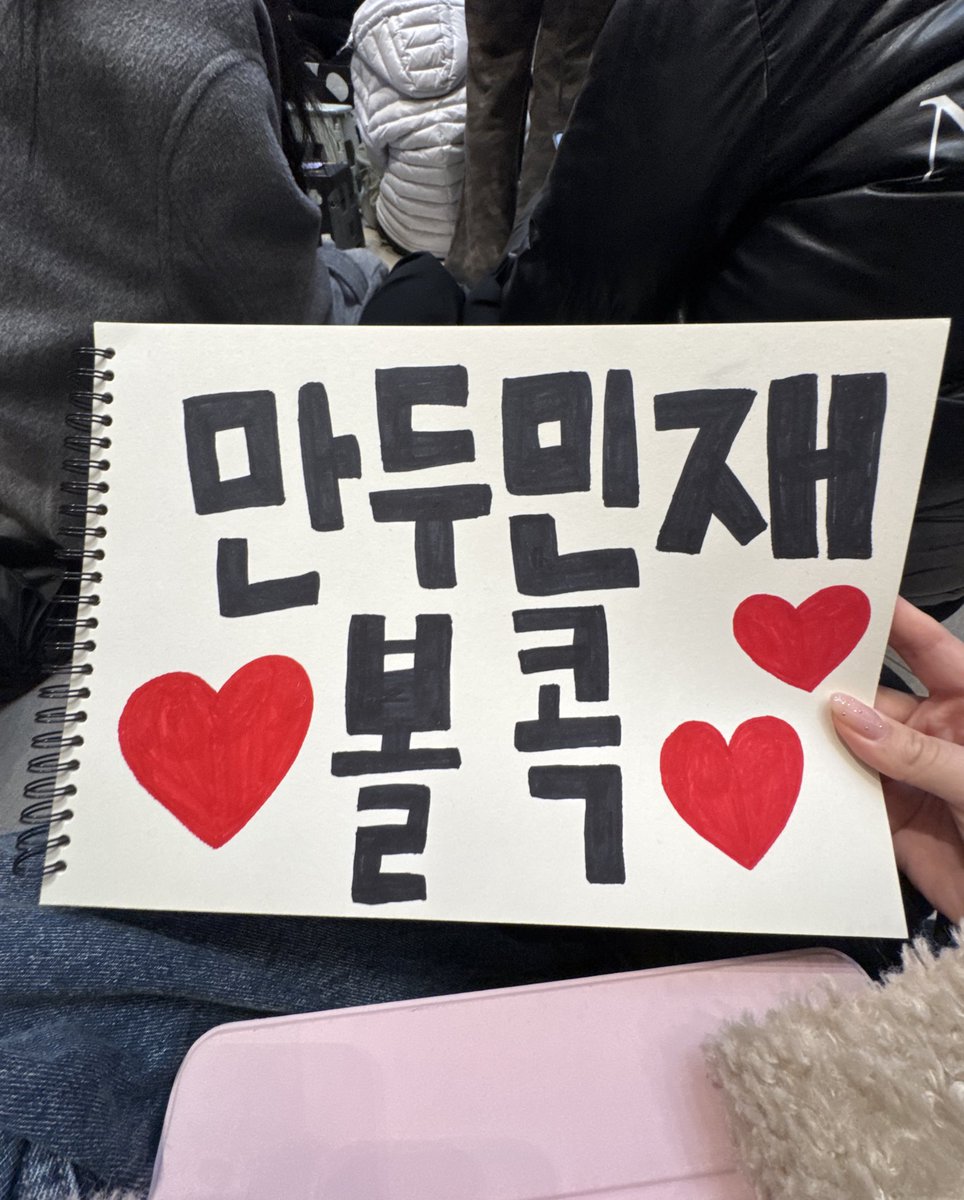 만두민재
볼콕
N